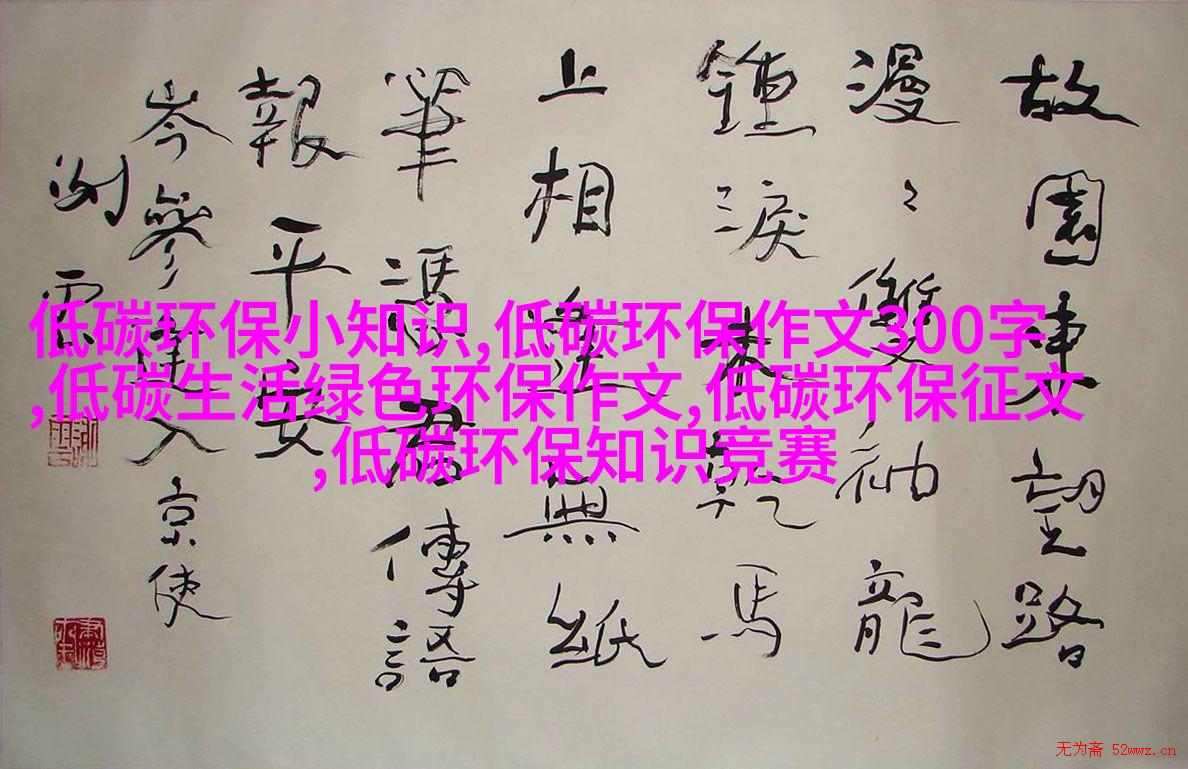 故園東望路
漫〻雙袖龍
鍾淚未乾馬
上相逢無紙
筆馮君傳語
報平安
岑參逢入京使
低碳环保小知识,低碳环保作文300字
,低碳生活绿色环保作文,低碳环保征文
,低碳环保知识竞赛
无为斋 52wwz.cn